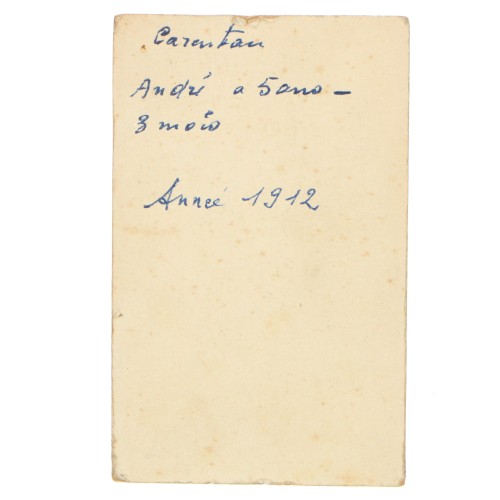 Carentan
André a 5 ans –
3 mois
Année 1912